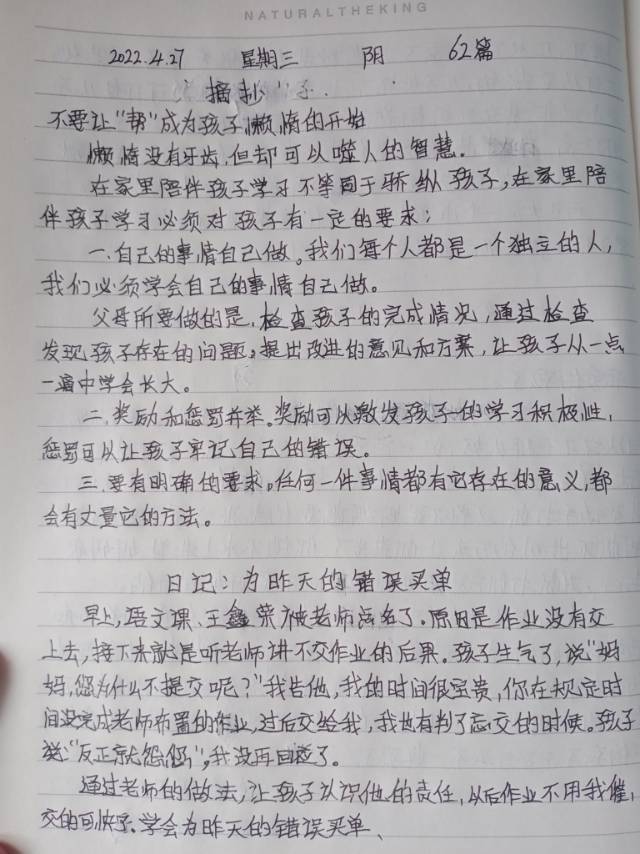 NATURALTHEKING
2022.4.27 星期三 阴 62篇
摘抄
不要让"帮"成为孩子懒惰的开始
懒惰没有牙齿,但却可以噬人的智慧.
在家里陪伴孩子学习不等同于骄纵孩子,在家里陪
伴孩子学习必须对孩子有一定的要求;
一.自己的事情自己做。我们每个人都是一个独立的人,
我们必须学会自己的事情自己做。
父母所要做的是,检查孩子的完成情况,通过检查
发现孩子存在的问题,提出改进的意见和方案,让孩子从一点
一滴中学会长大。
二.奖励和惩罚并举。奖励可以激发孩子的学习积极性,
惩罚可以让孩子牢记自己的错误。
三.要有明确的要求。任何一件事情都有它存在的意义,都
会有丈量它的方法。
日记:为昨天的错误买单
早上,语文课、王鑫荣被老师点名了。原因是作业没有交
上去,接下来就是听老师讲不交作业的后果。孩子生气了,说"妈
妈,您为什么不提交呢?"我告他,我的时间很宝贵,你在规定时
间没完成老师布置的作业,过后交给我,我也有判了忘交的时候。孩子
说:"反正就怨您",我没再回应了。
通过老师的做法,让孩子认识他的责任,从后作业不用我催,
交的可快了.学会为昨天的错误买单、